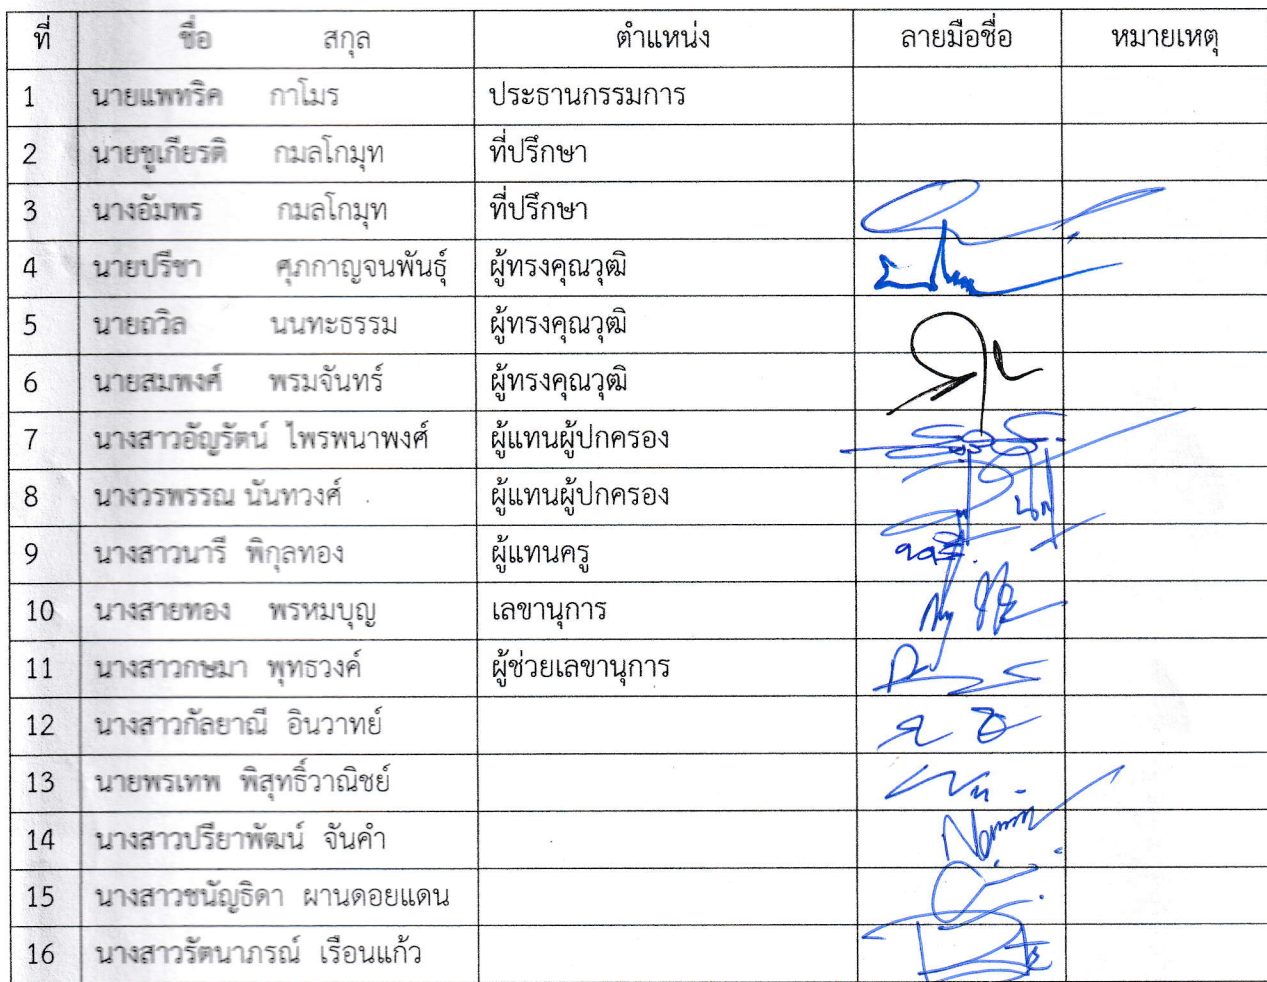 ที่ ชื่อ สกุล ตำแหน่ง ลายมือชื่อ หมายเหตุ
1 นายแพทริค กาโมร ประธานกรรมการ
2 นายชูเกียรติ กมลโกมุท ที่ปรึกษา
3 นางอัมพร กมลโกมุท ที่ปรึกษา
4 นายปรีชา ศุภกาญจนพันธุ์ ผู้ทรงคุณวุฒิ
5 นายถวิล นนทะธรรม ผู้ทรงคุณวุฒิ
6 นายสมพงศ์ พรมจันทร์ ผู้ทรงคุณวุฒิ
7 นางสาวอัญรัตน์ ไพรพนาพงศ์ ผู้แทนผู้ปกครอง
8 นางวรพรรณ นันทวงศ์ ผู้แทนผู้ปกครอง
9 นางสาวนารี พิกุลทอง ผู้แทนครู
10 นางสายทอง พรหมบุญ เลขานุการ
11 นางสาวกษมา พุทธวงค์ ผู้ช่วยเลขานุการ
12 นางสาวกัลยาณี อินวาทย์
13 นายพรเทพ พิสุทธิ์วาณิชย์
14 นางสาวปรียาพัฒน์ จันคำ
15 นางสาวชนัญธิดา ผานดอยแดน
16 นางสาวรัตนาภรณ์ เรือนแก้ว